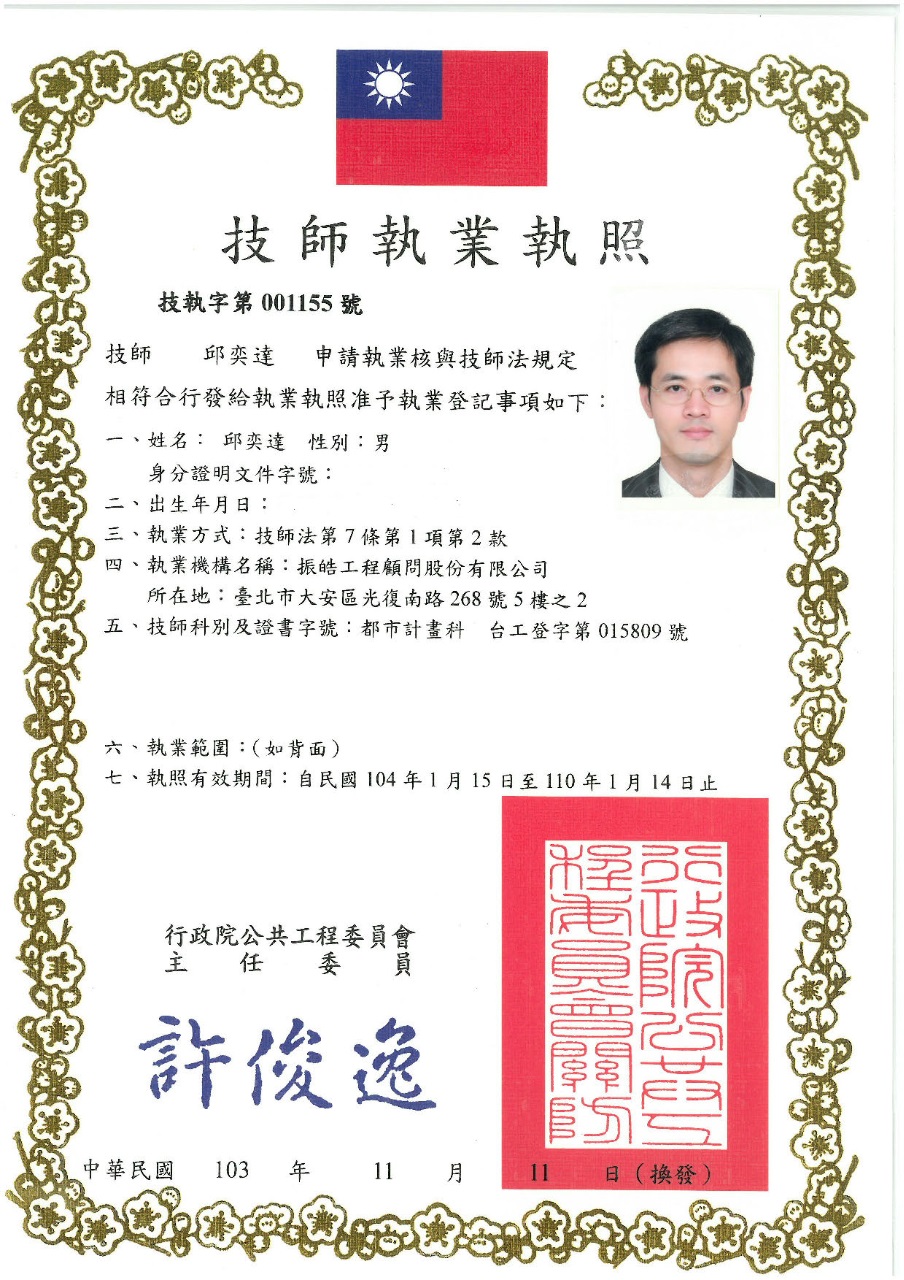 技師執業執照
技執字第 001155 號
技師 邱奕達 申請執業核與技師法規定
相符合行發給執業執照准予執業登記事項如下：
一、姓名： 邱奕達 性別：男
身分證明文件字號：
二、出生年月日：
三、執業方式：技師法第 7 條第 1 項第 2 款
四、執業機構名稱：振皓工程顧問股份有限公司
所在地：臺北市大安區光復南路 268 號 5 樓之 2
五、技師科別及證書字號：都市計畫科 台工登字第 015809 號
六、執業範圍：(如背面)
七、執照有效期間：自民國 104 年 1 月 15 日至 110 年 1 月 14 日止
行政院公共工程委員會
主任委員
許俊逸
行政院公共工
程委員會關防
中華民國 103 年 11 月 11 日（換發）